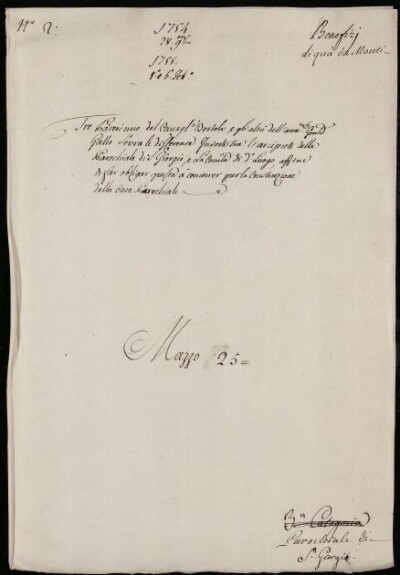 N.º 2:
1754
28. 9bre
1755
1º e 6. feb.º
Benefizj
di qua da Monti
Tre del Canap.e Bertola, e gli altri dell'
Gallo sovra le differenze insorte tra l'arciprete della
Parochiale di S. Giorgio, e la Comtà di d.º luogo affine
di far obligar questa a concorrer per la Costruzione
della Casa Parochiale
Mazzo 25=
3.a Categoria
Parochiale di
S. Giorgio